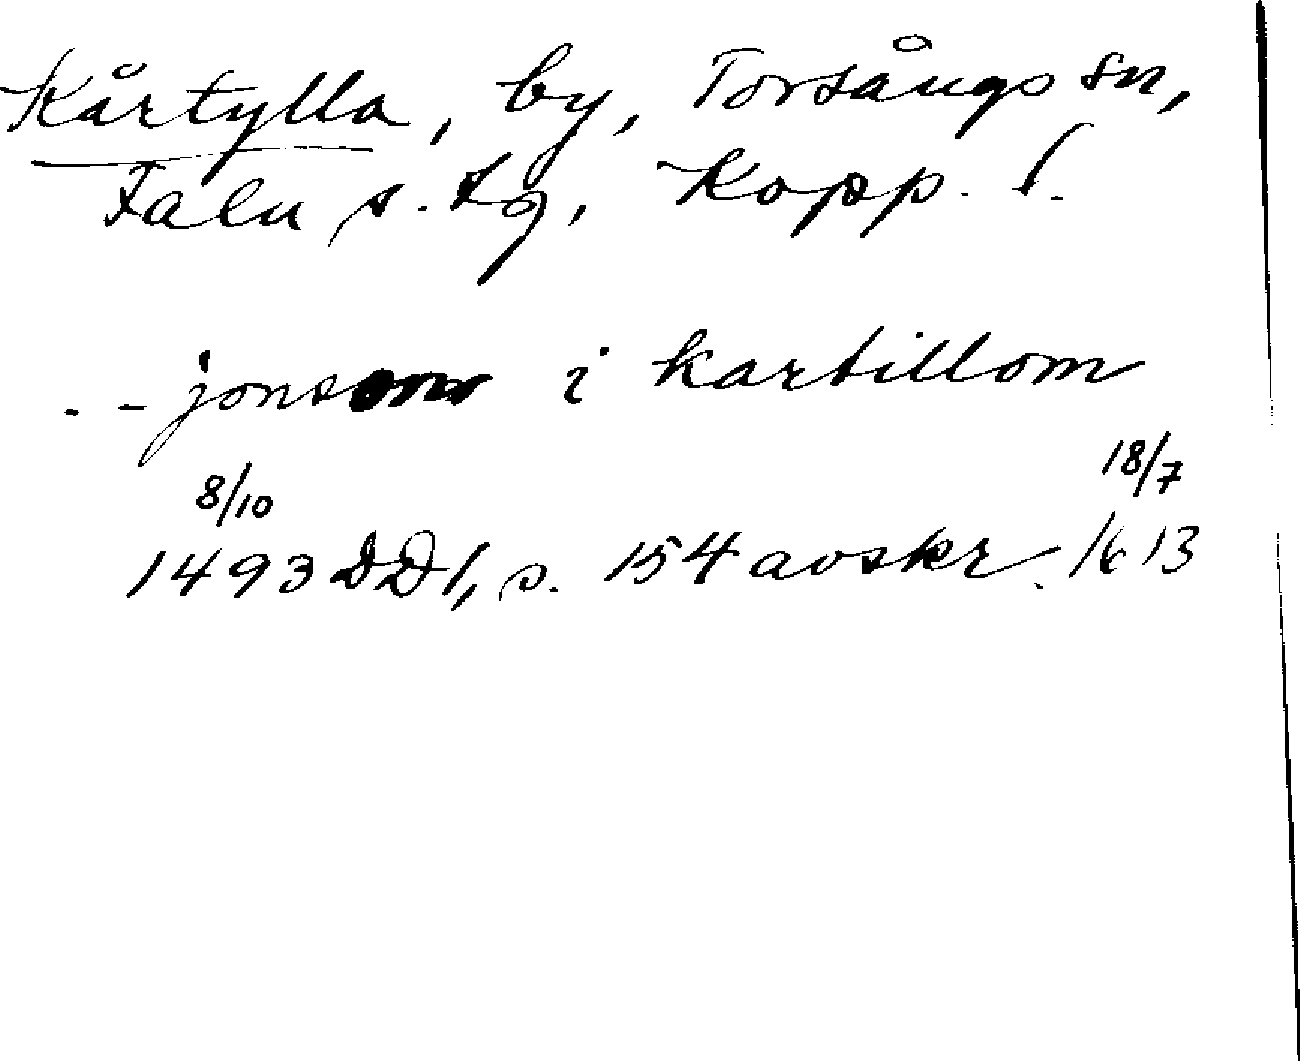 Kårtylla, by, Torsångs sn,
Falu s. tg, Kopp. l.
. - jonsson i kartillom
8/10 18/7
1493 DD1, s. 154 avskr. 1613